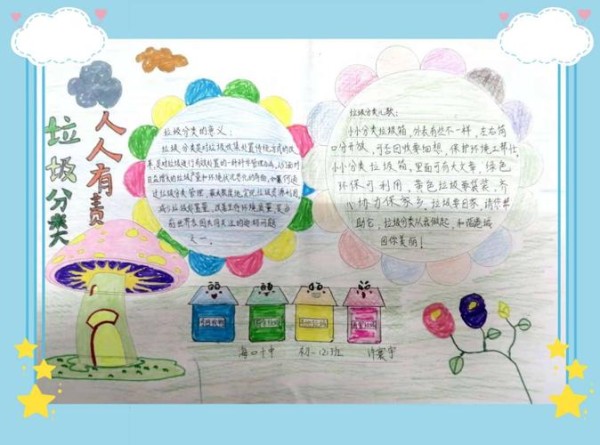 垃圾分类
人人有责
垃圾分类的意义:
垃圾分类是对垃圾收集处置传统方式的改
革,是对垃圾进行有效处置的一种科学管理方法,人们面对
日益增长的垃圾产量和环境状况恶化的局面,如何通
过垃圾分类管理,最大限度地实现垃圾资源利用,
减少垃圾处置量,改善生存环境质量,是当
前世界各国共同关注的迫切问题
之一。
垃圾分类儿歌:
小小分类垃圾箱,外表有些不一样,左右简
口分开放,可否回收要细想,保护环境立帮忙
小小分类垃圾箱,里面可有大文章,绿色
环保可利用,黄色垃圾要袋装,齐
心协力保家乡,垃圾要回家,请你帮
助它,垃圾分类从我做起,和谐边城
因你美丽!
海口十中 初一(2)班 许寰宇